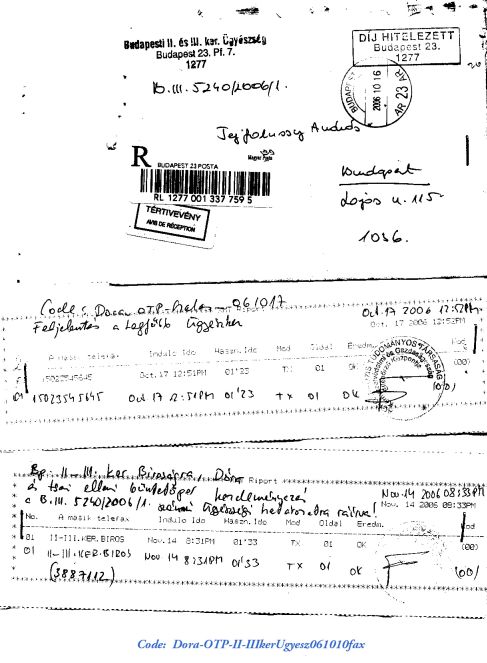 Budapesti II. és III. ker. Ügyészség
Budapest 23. Pf. 7.
1277
DÍJ HITELEZETT
Budapest 23.
1277
B.III. 5240/2006/1.
BUDAPEST
2006 10 16
AR 23 AR
Tejfalussy András
R
BUDAPEST 23 POSTA
Magyar Posta
RL 1277 001 337 759 5
Budapest
Lajos u. 115
1036.
TÉRTIVEVÉNY
AVIS DE RÉCEPTION
Code: Dora-OTP- 061017
Oct 17 2006 12:52PM
Feljelentés a Legfőbb Ügyészhez
Oct. 17 2006 12:53PM
A masik telefax Indulo Ido Haszn.Ido Mod Oldal Eredm. Kod
15023545645 Oct.17 12:51PM 01'23 TX 01 OK (00)
01 15023545645 Oct 17 12:51PM 01'23 TX 01 OK (00)
TUDOMÁNYOS TÁRSASÁG
Bp. II-III. ker Bíróságra, Dóra
Riport
és társai elleni büntetőper kezdeményezés
Nov 14 2006 08:33PM
a B.III. 5240/2006/1. számú ügyészségi határozatra
Nov. 14 2006 08:33PM
No. A masik telefax Indulo Ido Haszn.Ido Mod Oldal Eredm.
01 II-III.KER.BIROS Nov.14 8:31PM 01'33 TX 01 OK (00)
01 II-III.KER.BIROS Nov 14 8:31PM 01'33 TX 01 OK (00)
(3887112)
Code: Dora-OTP-II-IIIkerUgyesz061010fax